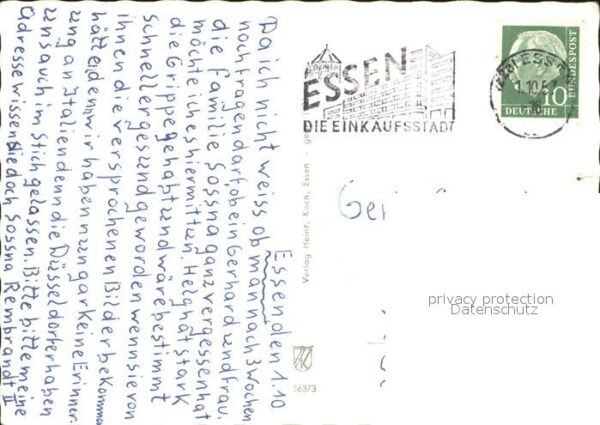 Essen den 1.10.
Da ich nicht weiss ob man nach 3 Wochen
noch fragen darf, ob ein Gerhard und Frau.
die Familie Sossna ganz vergessen hat
möchte ich es hiermit tun. Helg hat stark
die Grippe gehabt und wäre bestimmt
schneller gesund geworden wenn sie von
ihnen die versprochenen Bilder bekommen
hätte, denn wir haben nun gar keine Erinner-
ung an Italien denn die Düsseldorfer haben
uns auch im Stich gelassen. Bitte bitte meine
Adresse wissen Sie doch Sossna Rembrandt II
ESSEN
DIE EINKAUFSSTADT
ESSEN
1.10.5
DEUTSCHE
BUNDESPOST
10
Verlag Heinr. Koch, Essen
56373
privacy protection
Datenschutz